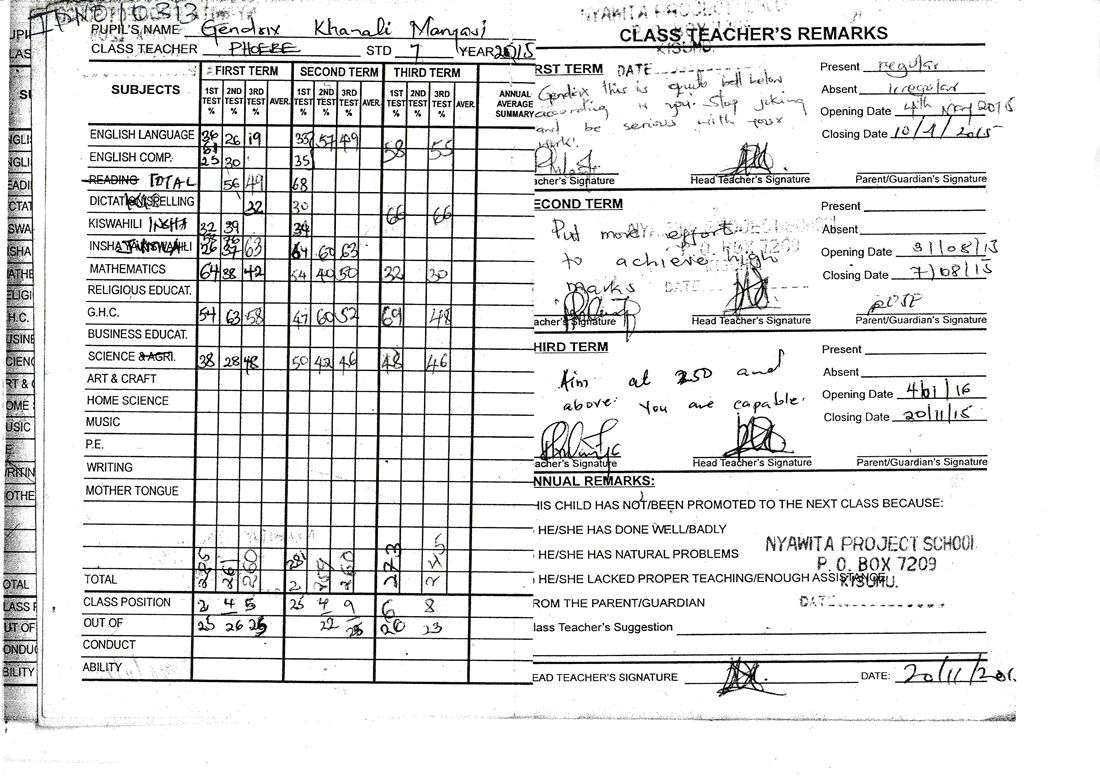 IDNO 10313
PUPIL'S NAME Gendrix Khanali Manyasi
CLASS TEACHER PHOEBE STD 7 YEAR 2015
SUBJECTS FIRST TERM SECOND TERM THIRD TERM
1ST TEST % 2ND TEST % 3RD TEST % AVER. 1ST TEST % 2ND TEST % 3RD TEST % AVER. 1ST TEST % 2ND TEST % 3RD TEST % AVER. ANNUAL AVERAGE SUMMARY
ENGLISH LANGUAGE 26 19 57 49 58 55
ENGLISH COMP. 25 30 35
READING TOTAL 56 49 68
SPELLING 22 30 66 66
KISWAHILI INSHA 32 39
INSHA 37 63 64 60 63
MATHEMATICS 64 38 42 54 40 50 32 30
RELIGIOUS EDUCAT.
G.H.C. 54 63 58 47 60 52 69 48
BUSINESS EDUCAT.
SCIENCE & AGRI. 38 28 48 50 42 46 48 46
ART & CRAFT
HOME SCIENCE
MUSIC
P.E.
WRITING
MOTHER TONGUE
TOTAL 260 273 245
CLASS POSITION 2 4 5 25 4 9 6 8
OUT OF 25 26 22 20 23
CONDUCT
ABILITY
NYAWITA PROJECT
CLASS TEACHER'S REMARKS
KISUMU.
RST TERM DATE
Gendrix this is quite bell below
according to you. Stop joking
and be serious with your
work!
acher's Signature Head Teacher's Signature Parent/Guardian's Signature
Present regular
Absent irregular
Opening Date 4th May 2015
Closing Date 10/4/2015
ECOND TERM
NYAWITA PROJECT SCHOOL
P.O. BOX 7209
DATE
Put more effort
to achieve high
marks
acher's Signature Head Teacher's Signature Parent/Guardian's Signature
Present
Absent
Opening Date 31/08/15
Closing Date 7/08/15
HIRD TERM
Aim at 250 and
above. You are capable.
acher's Signature Head Teacher's Signature Parent/Guardian's Signature
Present
Absent
Opening Date 4/01/16
Closing Date 20/11/15
NNUAL REMARKS:
HIS CHILD HAS NOT/BEEN PROMOTED TO THE NEXT CLASS BECAUSE:
HE/SHE HAS DONE WELL/BADLY
HE/SHE HAS NATURAL PROBLEMS
HE/SHE LACKED PROPER TEACHING/ENOUGH ASSISTANCE
ROM THE PARENT/GUARDIAN
NYAWITA PROJECT SCHOOL
P. O. BOX 7209
KISUMU.
DATE
lass Teacher's Suggestion
EAD TEACHER'S SIGNATURE DATE: 20/11/201